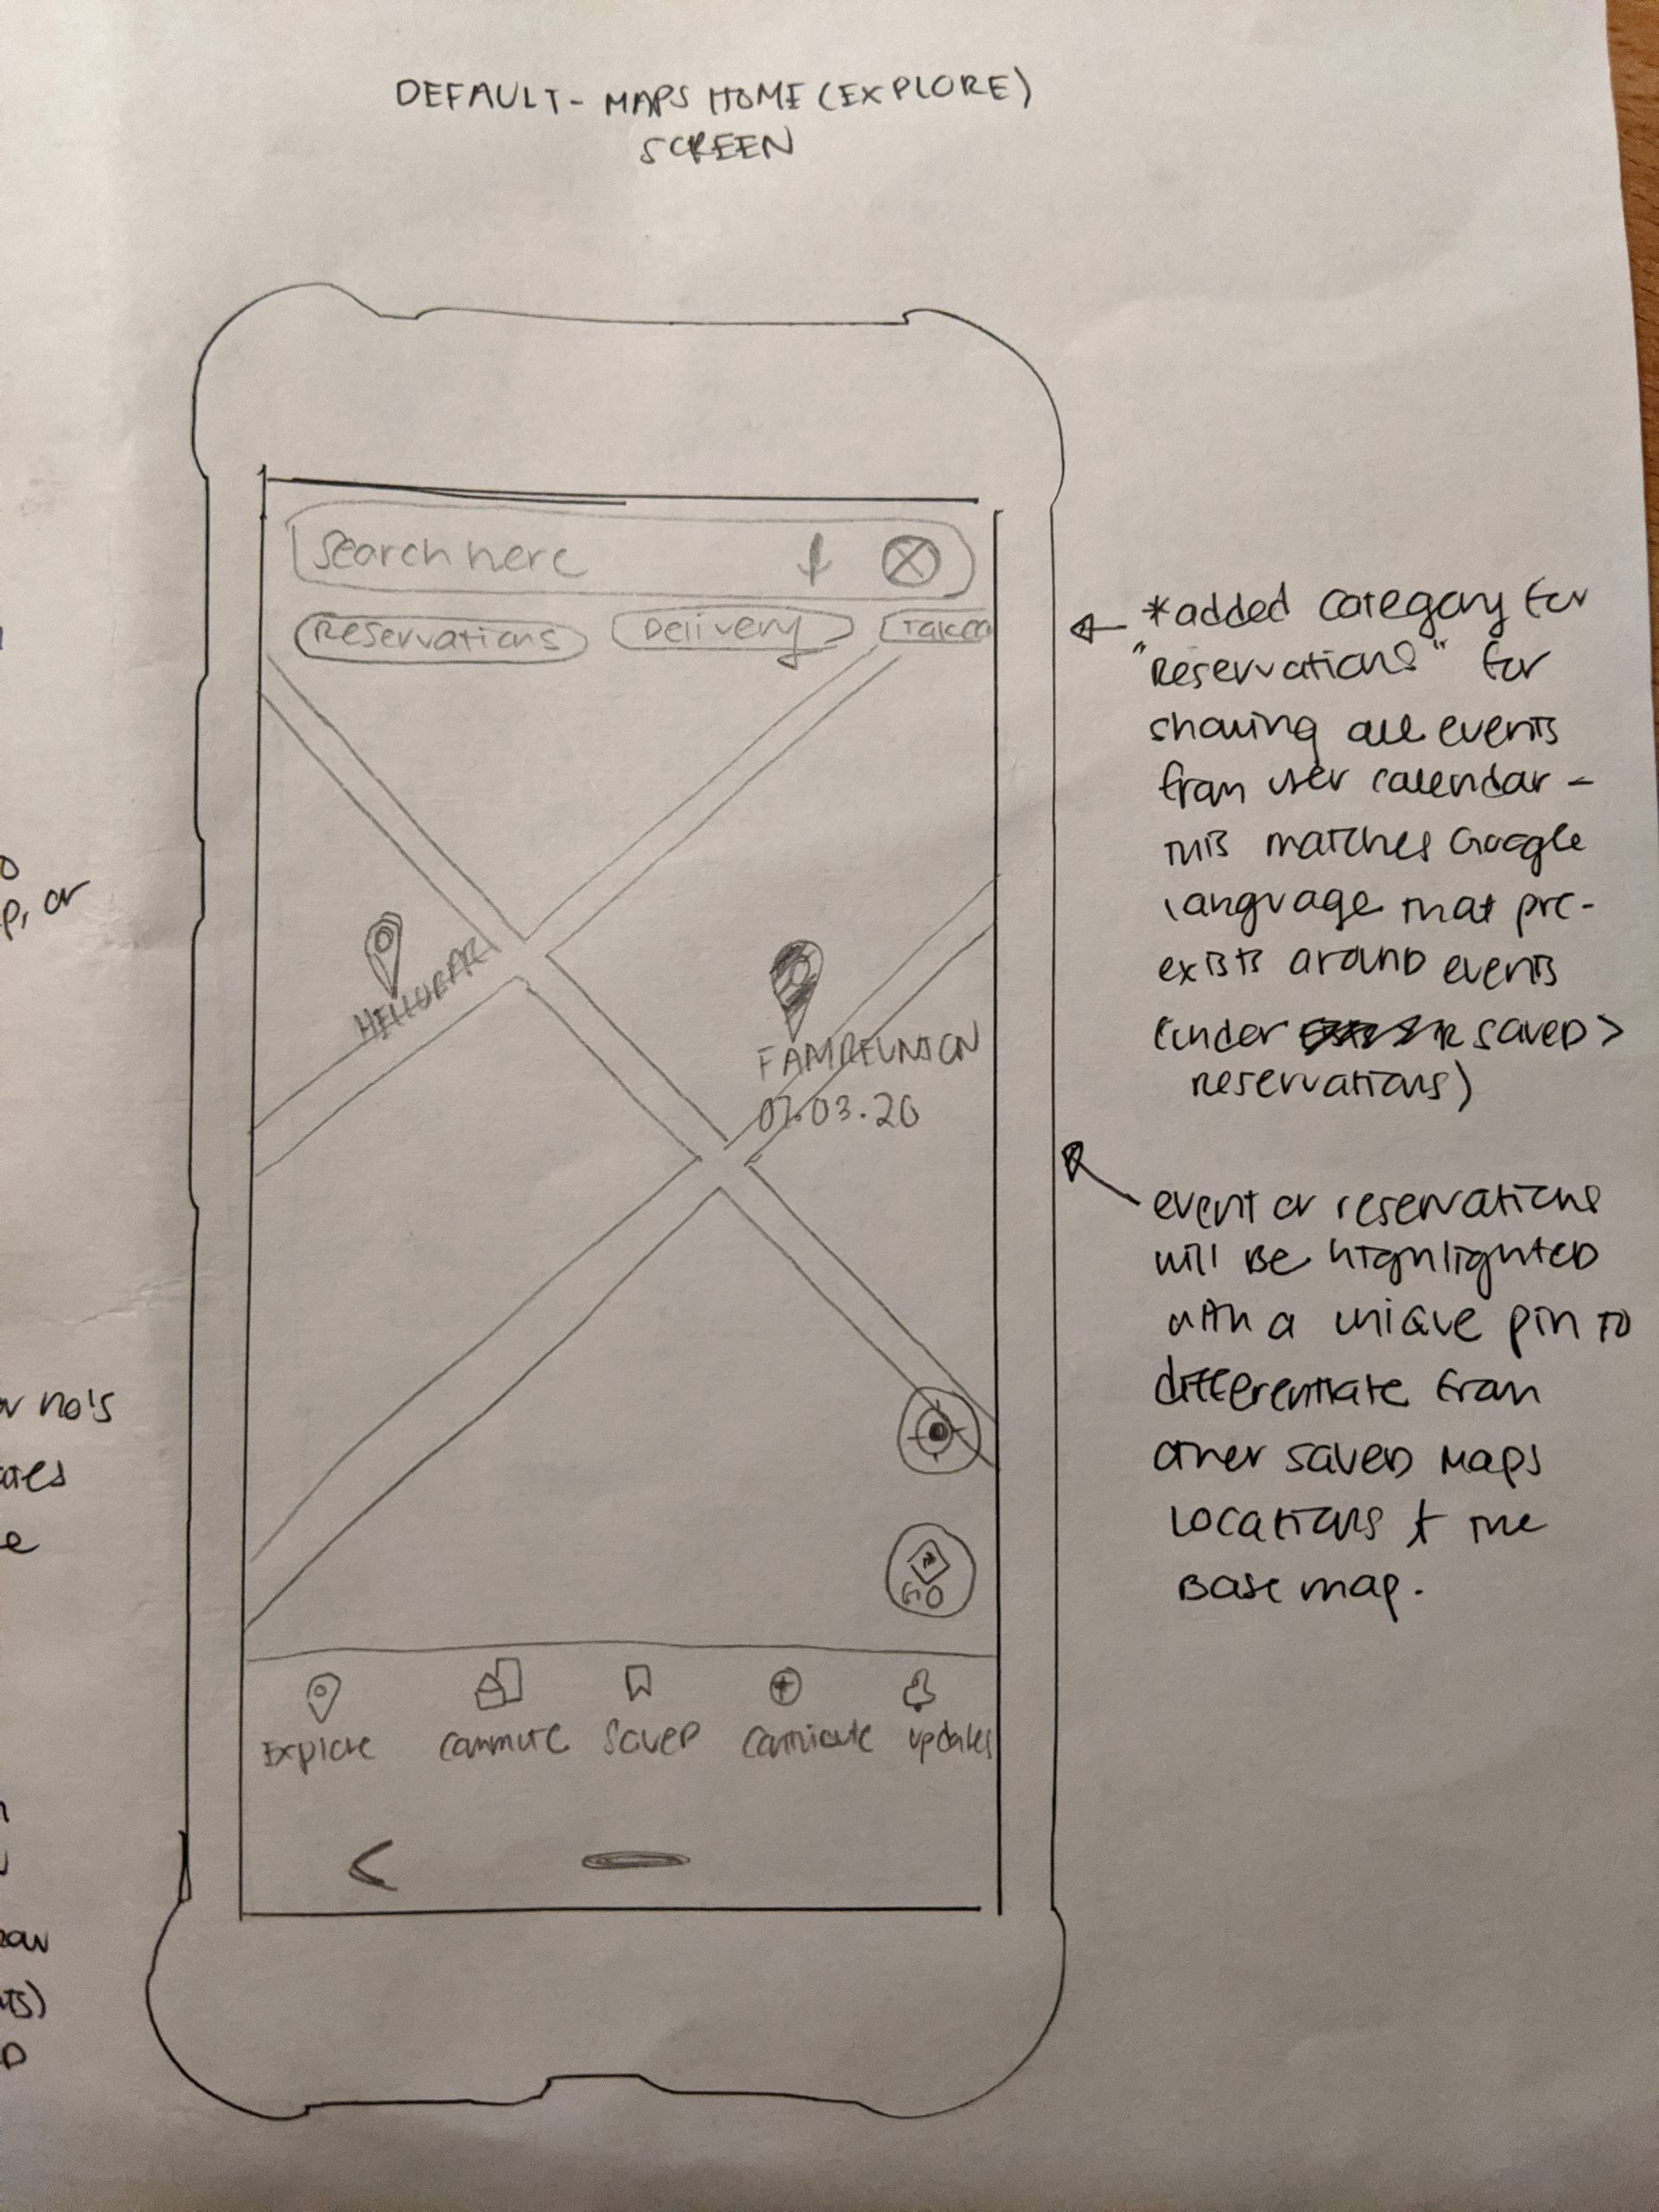 DEFAULT - MAPS HOME (EXPLORE)
SCREEN
Search here
Reservations
Delivery
Takeo
HELLO BAR
FAM REUNION
07.03.20
GO
Explore
commute
Saved
Contribute
updates
*added category for
"Reservations" for
showing all events
from user calendar -
this matches Google
language that pre-
exists around events
(under saved >
reservations)
event or reservations
will be highlighted
with a unique pin to
differentiate from
other saved maps
locations & the
base map.
p, or
or no's
e